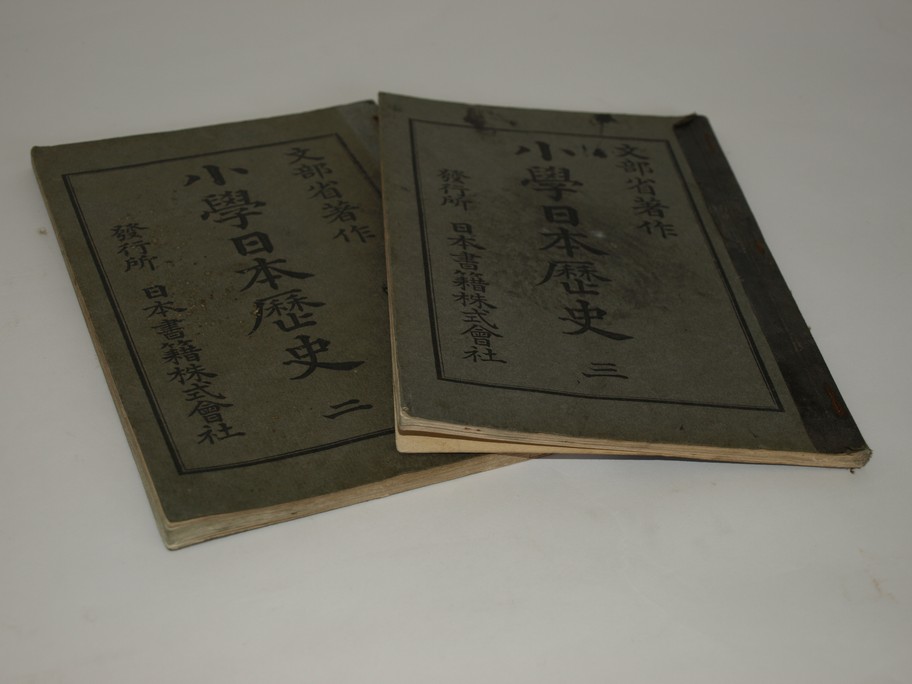 文部省著作
小學日本歷史 二
發行所 日本書籍株式會社
文部省著作
小學日本歷史 三
發行所 日本書籍株式會社